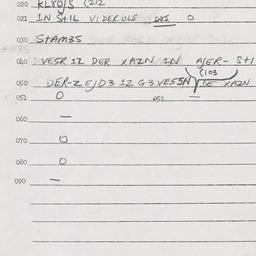 020 KLYDJS (212
021 IN StIL VIDEROLS O
030 StAM3S
040 VESR 1Z DER XAZN IN AJER- StI
(103
050 DER-Z EJD3 1Z G3 VESSN DE XAZN
051 O
060 —
070 O
080 O
090 —